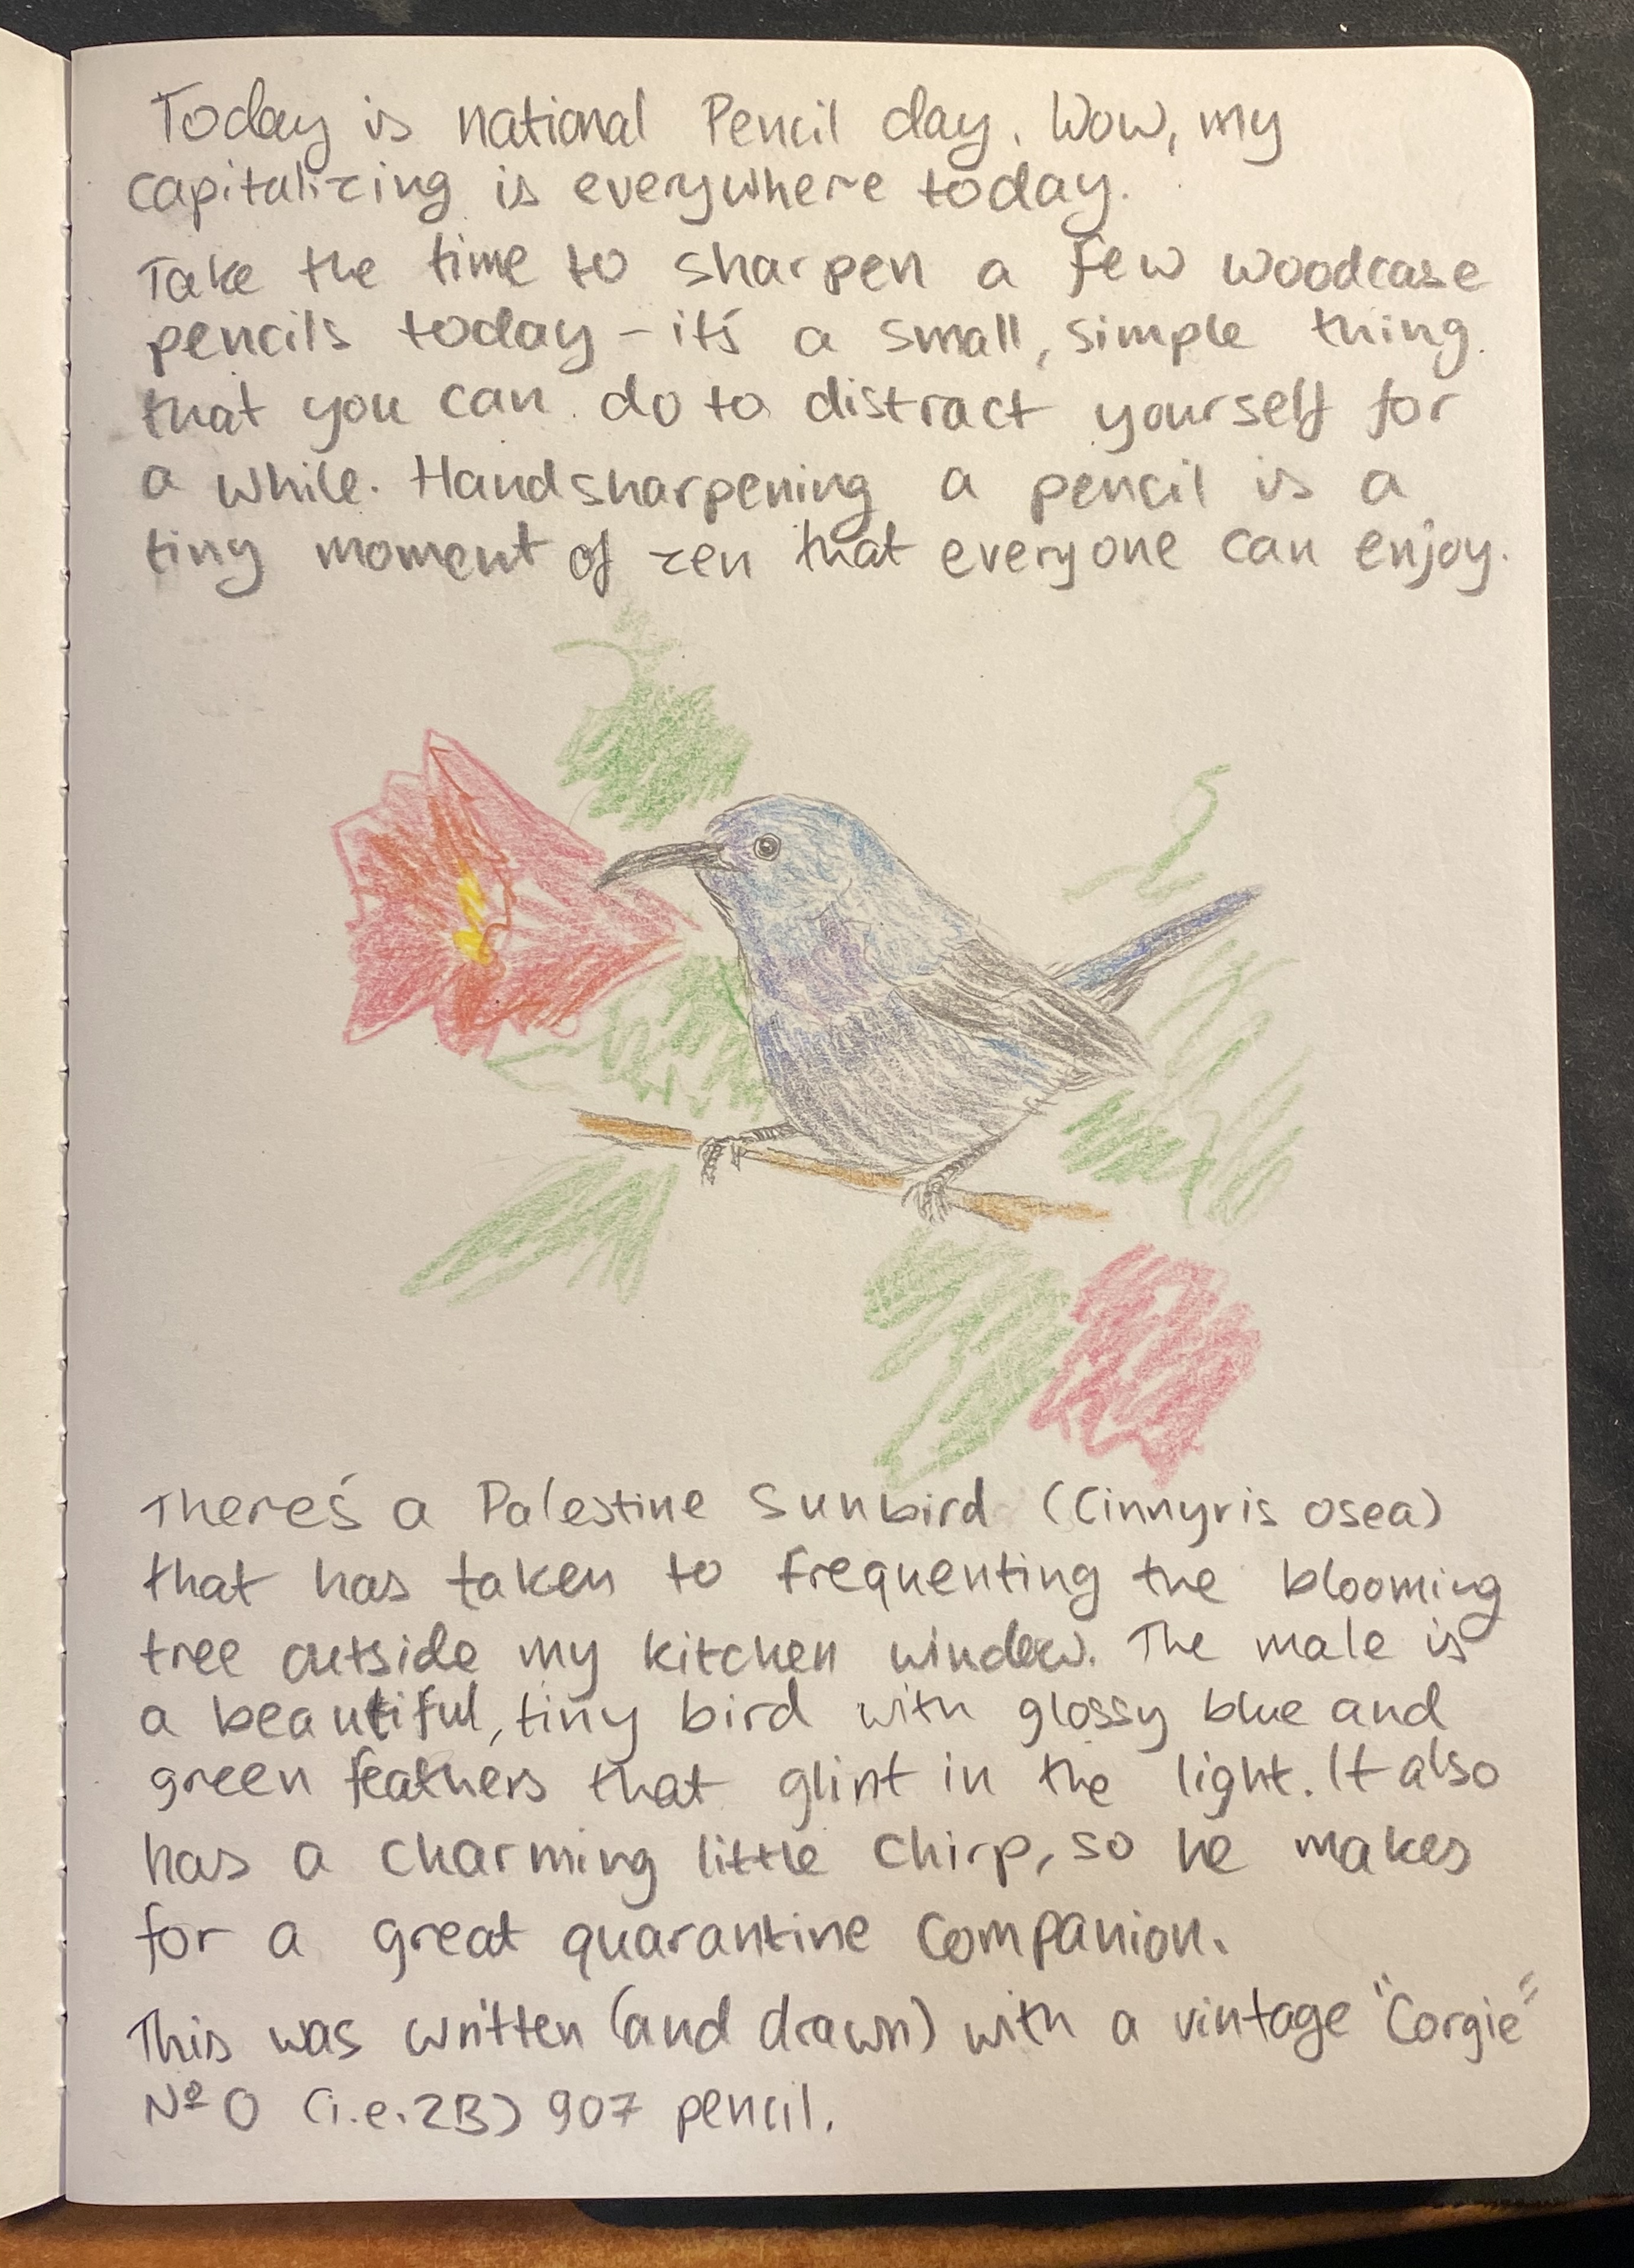 Today is national Pencil day. Wow, my
capitalizing is everywhere today.
Take the time to sharpen a few woodcase
pencils today – it's a small, simple thing
that you can do to distract yourself for
a while. Handsharpening a pencil is a
tiny moment of zen that everyone can enjoy.
There's a Palestine Sunbird (Cinnyris osea)
that has taken to frequenting the blooming
tree outside my kitchen window. The male is
a beautiful, tiny bird with glossy blue and
green feathers that glint in the light. It also
has a charming little chirp, so he makes
for a great quarantine companion.
This was written (and drawn) with a vintage "Corgie"
Nº 0 (i.e. 2B) 907 pencil.